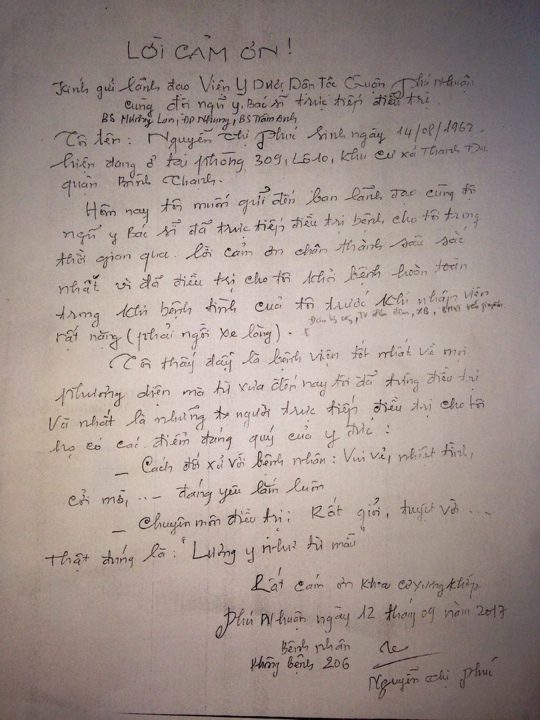 LỜI CẢM ƠN!
Kính gửi lãnh đạo Viện Y Dược Dân Tộc Quận Phú Nhuận
cùng đội ngũ y, Bác sĩ trực tiếp điều trị.
BS Hương Lan, BS Trâm Anh
Tôi tên: Nguyễn Thị Phú sinh ngày 14/08/1962.
hiện đang ở tại phòng 309, Lô 10, Khu cư xá Thanh Đa
quận Bình Thạnh.
Hôm nay tôi muốn gửi đến ban lãnh đạo cùng đội
ngũ y Bác sĩ đã trực tiếp điều trị bệnh cho tôi trong
thời gian qua lời cảm ơn chân thành sâu sắc
nhất vì đã điều trị cho tôi khỏi bệnh hoàn toàn
trong khi bệnh tình của tôi trước khi nhập viện
rất nặng (phải ngồi xe lăng).
Tôi thấy đây là bệnh viện tốt nhất về mọi
phương diện mà từ xưa đến nay tôi đã từng điều trị
Và nhất là những người trực tiếp điều trị cho tôi
họ có các điểm đáng quý của y đức:
– Cách đối xử với bệnh nhân: Vui vẻ, nhiệt tình,
cởi mở, ... đáng yêu lắm luôn
– Chuyên môn điều trị: Rất giỏi, tuyệt vời ...
Thật đúng là: "Lương y như từ mẫu"
Rất cám ơn khoa cơ xương khớp
Phú Nhuận ngày 12 tháng 09 năm 2017
Bệnh nhân
Phòng bệnh 206
Nguyễn Thị Phú